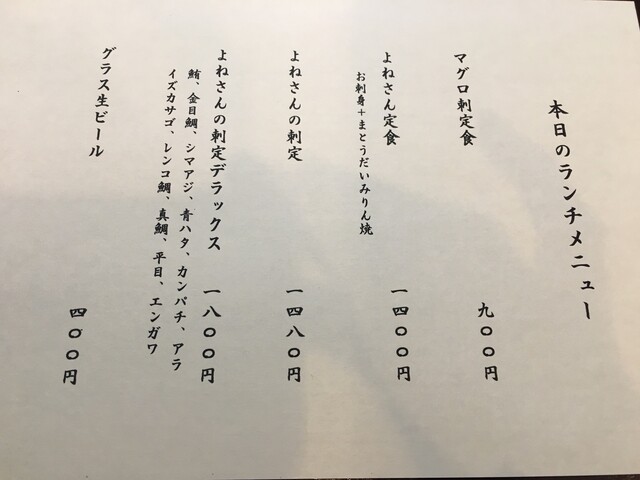 本日のランチメニュー
マグロ刺定食 九〇〇円
よねさん定食 一四〇〇円
お刺身+まとうだいみりん焼
よねさんの刺定 一四八〇円
よねさんの刺定デラックス 一八〇〇円
鮪、金目鯛、シマアジ、青ハタ、カンパチ、アラ
イズカサゴ、レンコ鯛、真鯛、平目、エンガワ
グラス生ビール 四〇〇円